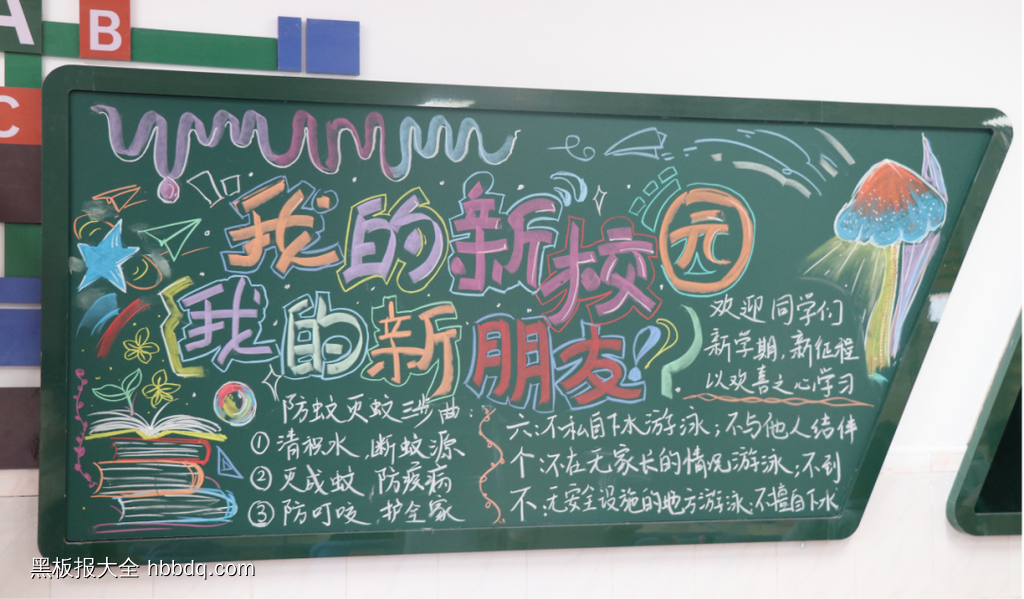 A
B
C
我的新校园
我的新朋友
欢迎同学们
新学期,新征程
以欢喜之心学习
防蚊灭蚊三步曲:
①清积水,断蚊源
②灭成蚊 防疾病
③防叮咬 护全家
六:不私自下水游泳;不与他人结伴
个:不在无家长的情况游泳;不到
不:无安全设施的地方游泳;不擅自下水
黑板报大全 hbbdq.com